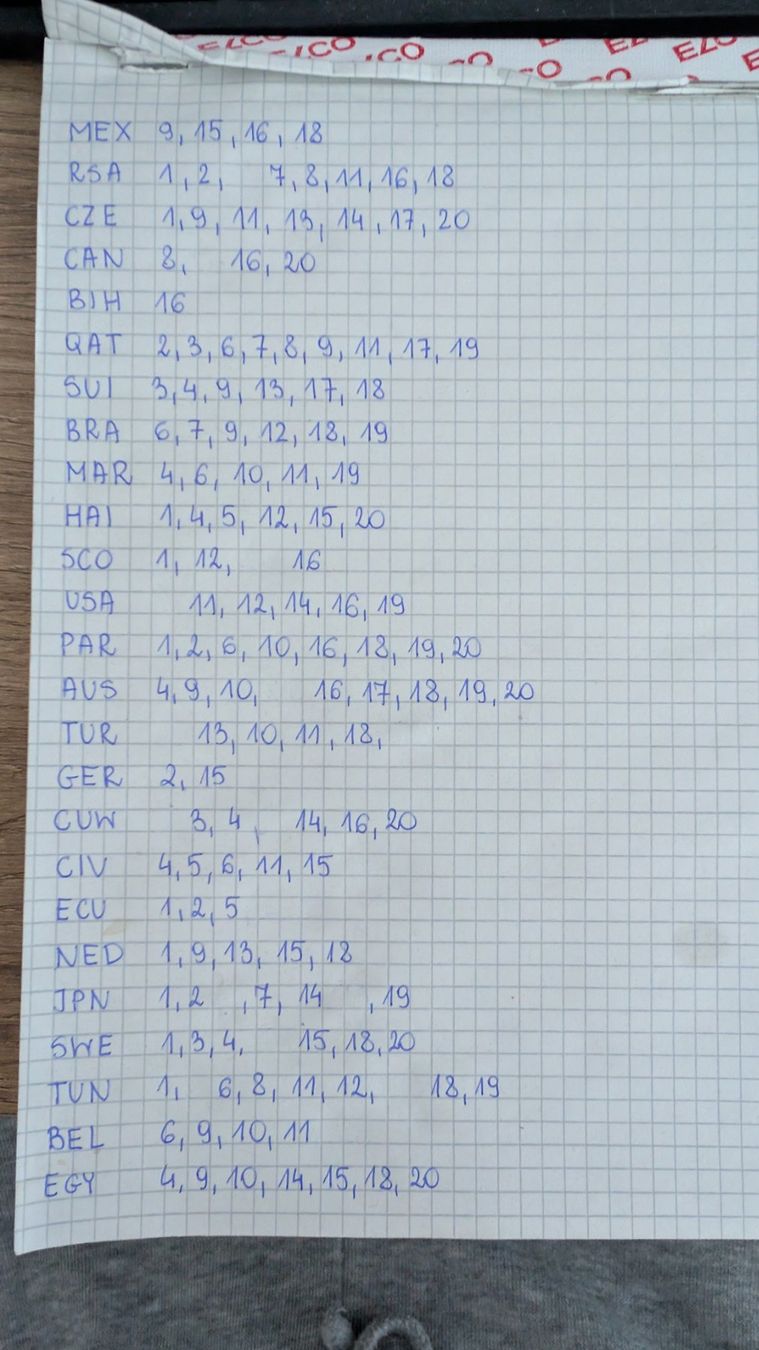 EZCO EZCO EZCO EZCO EZCO
MEX 9, 15, 16, 18
RSA 1, 2, 7, 8, 11, 16, 18
CZE 1, 9, 11, 13, 14, 17, 20
CAN 8, 16, 20
BIH 16
QAT 2, 3, 6, 7, 8, 9, 11, 17, 19
SUI 3, 4, 9, 13, 17, 18
BRA 6, 7, 9, 12, 18, 19
MAR 4, 6, 10, 11, 19
HAI 1, 4, 5, 12, 15, 20
SCO 1, 12, 16
USA 11, 12, 14, 16, 19
PAR 1, 2, 6, 10, 16, 18, 19, 20
AUS 4, 9, 10, 16, 17, 18, 19, 20
TUR 13, 10, 11, 18,
GER 2, 15
CUW 3, 4, 14, 16, 20
CIV 4, 5, 6, 11, 15
ECU 1, 2, 5
NED 1, 9, 13, 15, 18
JPN 1, 2 , 7, 14 , 19
SWE 1, 3, 4, 15, 18, 20
TUN 1, 6, 8, 11, 12, 18, 19
BEL 6, 9, 10, 11
EGY 4, 9, 10, 14, 15, 18, 20